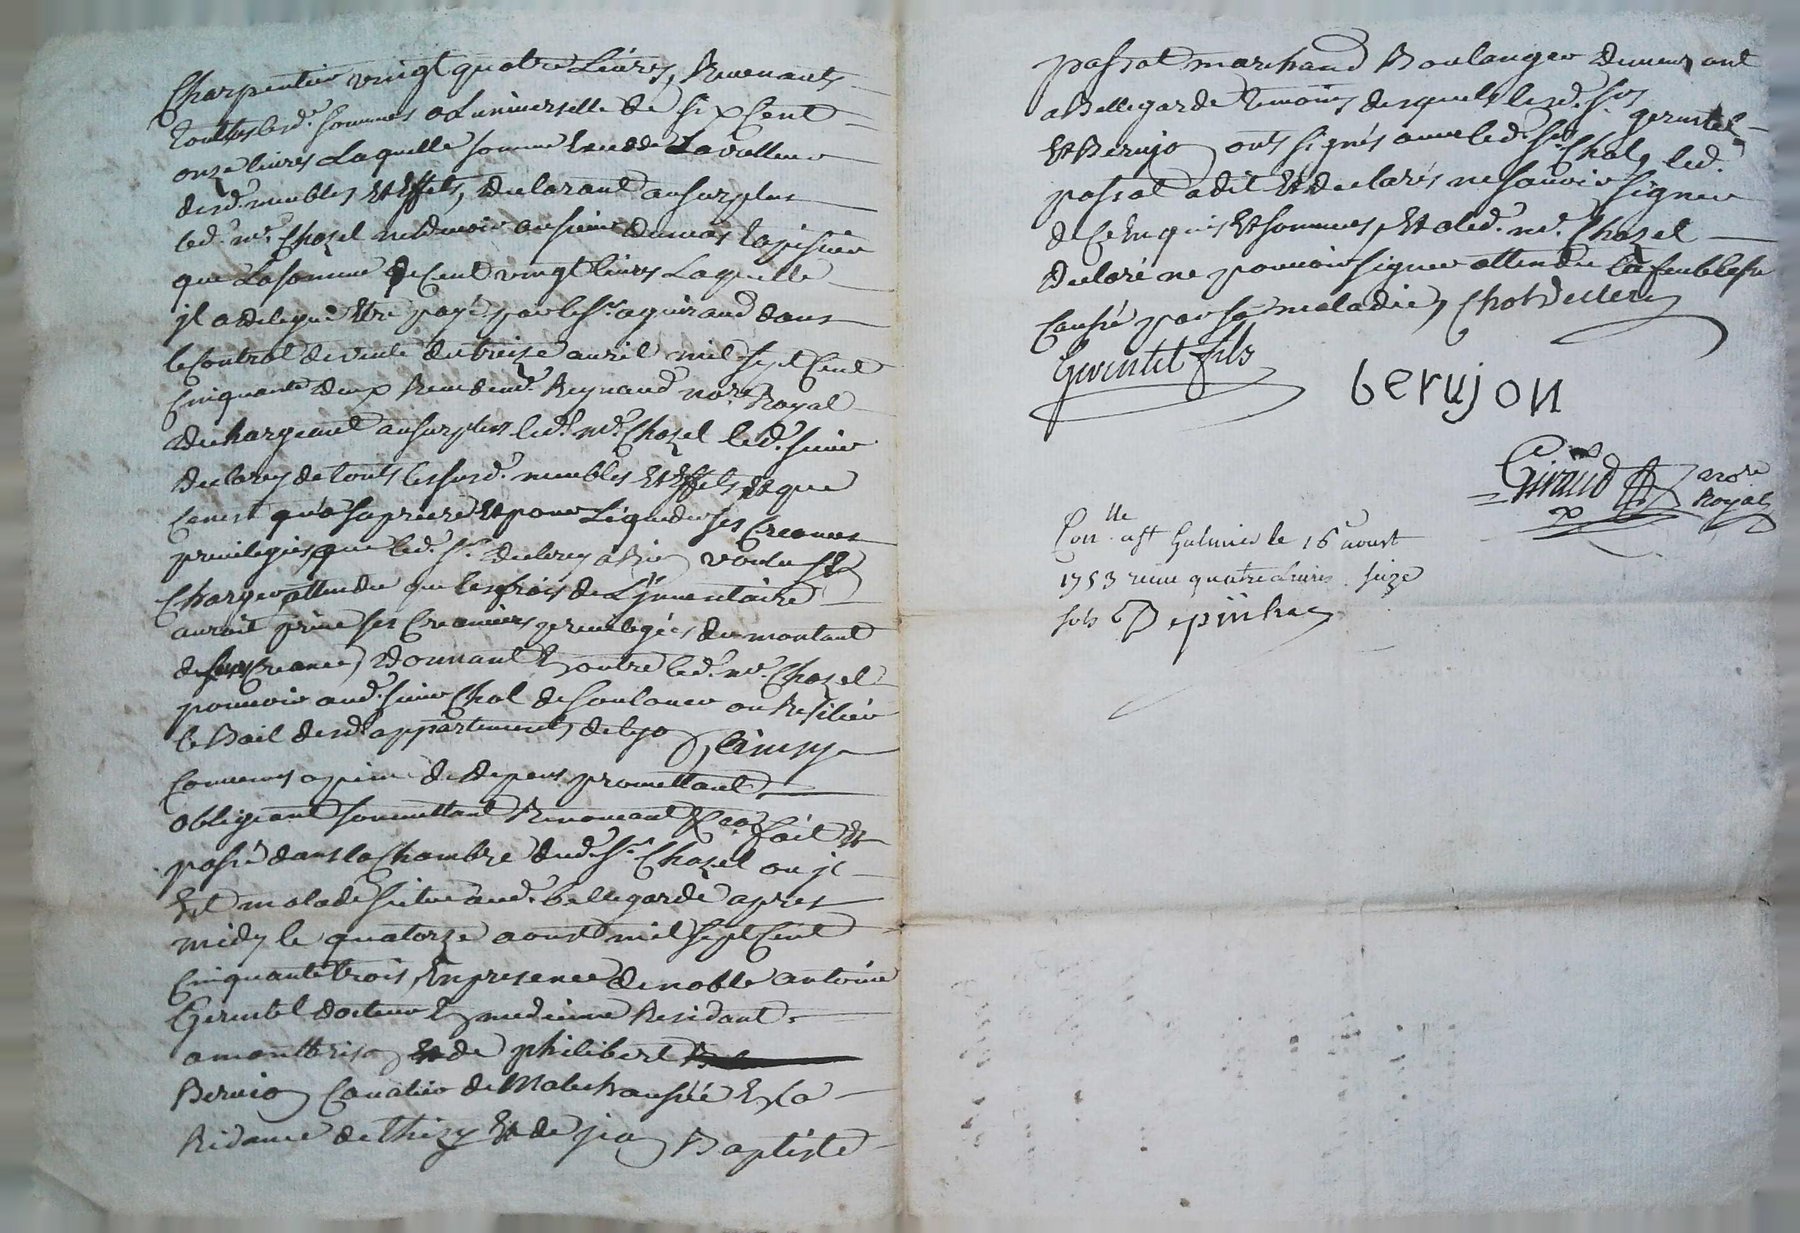 Charpentier vingt quatre Livres, Revenants
touttes lesd. sommes a Luniverselle de six Cent
onze livres Laquelle somme Excede La valleur
desd. meubles Et Effets, declarant au surplus
led. mr. Chazel ne devoir au sieur dumas tapissier
que La somme de Cent vingt livres Laquelle
jl a delegué Etre payé par le Sr. aguiraud dans
le Contrat de vente du treize avril mil sept Cent
Cinquante deux Receu devd. Reynaud nore. Royal
dechargeant au surplus led. mr. Chazel led. sieur
declerey de touts les susd. meubles Et Effets, Et que
Ce n'est qu'a sa priere Et pour Liquider ses Creances
privilegiés que led. Sr. declerey a bien voulu s'En
Charger, attendu que les frais de L'jnventaire
auroit privé ses Creanciers privilegiés du montant
de leurs Creances, donnant En outre led. mr. Chazel
pouvoir aud. sieur Chol de soulouer ou Resilier
le Bail desd. appartements de lyon, ainsy
Convenus a peine de depens promettant
obligeant soumettant Renonceant fait Et
passé dans la Chambre dud. Sr. Chazel ou jl
Est malade sittuée aud. bellegarde apres
midy le quatorze aoust mil sept Cent
Cinquante trois, En presence de noble antoine
Gerentet docteur En medecine Residant
a montbrison Et de philibert
Berujon Cavalier de Marechaussée En la
Ridance de thizy Et de jean Baptiste
passat marchand Boulanger demeurant
a Bellegarde temoins desquels lesd. Srs. gerentet
Et Berujon onts signés avec led. Sr. Chol, led.
passat a dit Et declarés ne sçavoir signer
de Ce Enquis Et sommés, Et a led. mr. Chazel
declaré ne pouvoir signer attendu la feublesse
Causée par sa maladie, Chol Declerey
Gerentet fils
berujon
Giraud nore.
Royal
Conlle. a St Galmier le 16 aoust
1753 receu quatre Livres seize
sols Depinhac